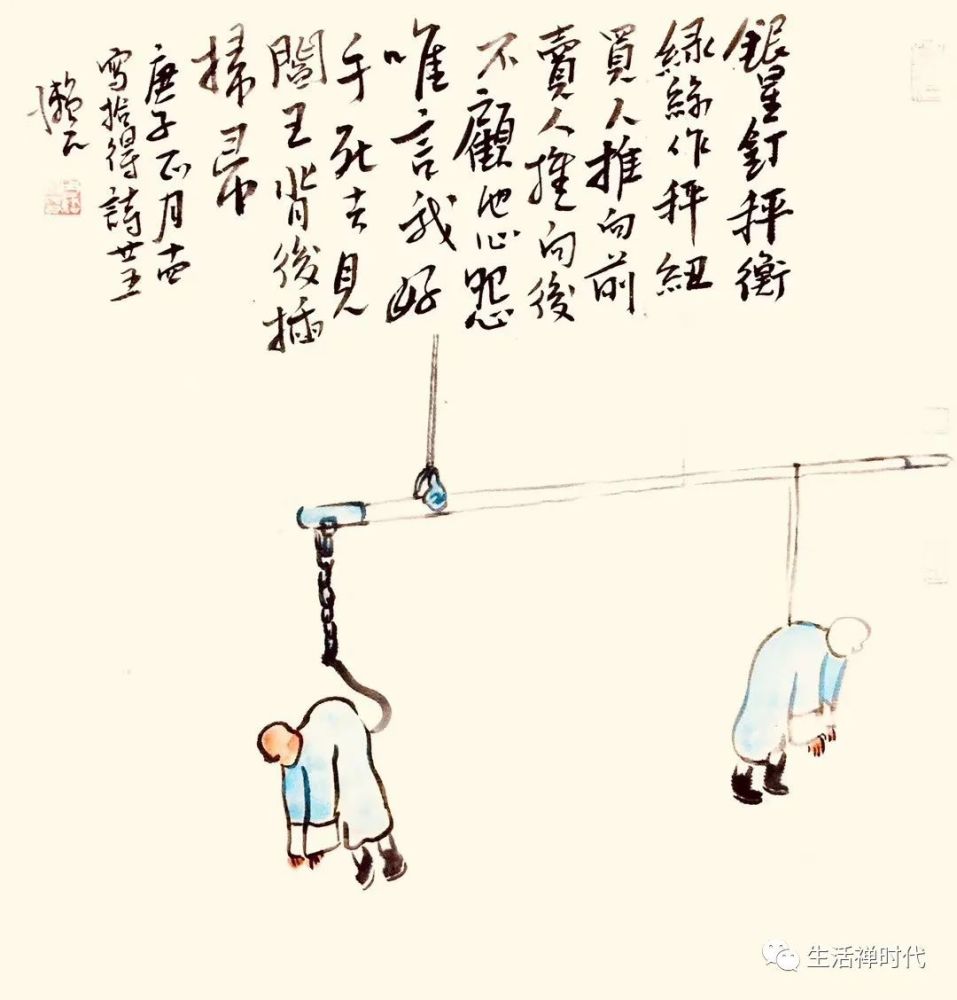 銀星釘秤衡
綠絲作秤紐
買人推向前
賣人推向後
不顧他心怨
唯言我好
手死去見
閻王背後插
掃帚
庚子正月十四
寫拾得詩廿五
懶石
生活禅时代